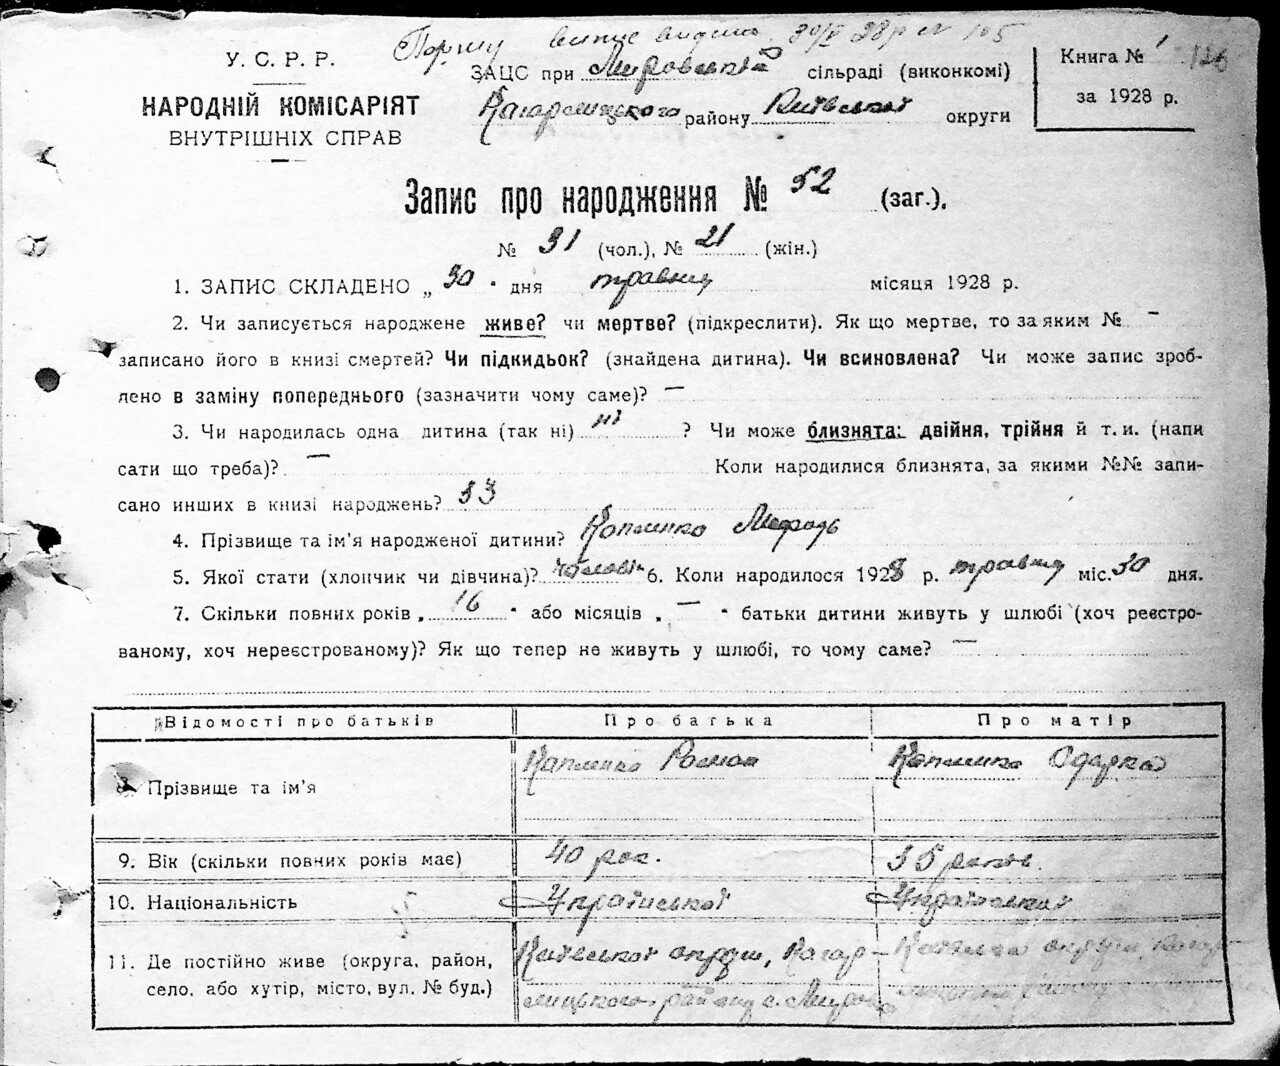 Першу випис видано 30/V 28 р № 105
У. С. Р. Р.
НАРОДНІЙ КОМІСАРІЯТ
ВНУТРІШНІХ СПРАВ
ЗАЦС при Мировській сільраді (виконкомі)
Кагарлицького району Київської округи
Книга № 1 126
за 1928 р.
Запис про народження № 52 (заг.).
№ 31 (чол.), № 21 (жін.)
1. ЗАПИС СКЛАДЕНО „ 30 " дня травня місяця 1928 р.
2. Чи записується народжене живе? чи мертве? (підкреслити). Як що мертве, то за яким № —
записано його в книзі смертей? Чи підкидьок? (знайдена дитина). Чи всиновлена? Чи може запис зроб-
лено в заміну попереднього (зазначити чому саме)? —
3. Чи народилась одна дитина (так ні) ні ? Чи може близнята: двійня, трійня й т. и. (напи
сати що треба)? — Коли народилися близнята, за якими №№ запи-
сано инших в книзі народжень? 53
4. Прізвище та ім'я народженої дитини? Капленко
5. Якої стати (хлопчик чи дівчина)? 6. Коли народилося 1928 р. травня міс. 30 дня.
7. Скільки повних років „ 16 " або місяців „ — " батьки дитини живуть у шлюбі (хоч реєстро-
ваному, хоч нереєстрованому)? Як що тепер не живуть у шлюбі, то чому саме? —
Відомості про батьків Про батька Про матір
8. Прізвище та ім'я Капленко Роман Капленко Одарка
9. Вік (скільки повних років має) 40 рок. 35 років.
10. Національність Української Української
11. Де постійно живе (округа, район, Київської округи, Кагар- Київської округи, Кагар-
село, або хутір, місто, вул. № буд.) лицького району с. Мирівка